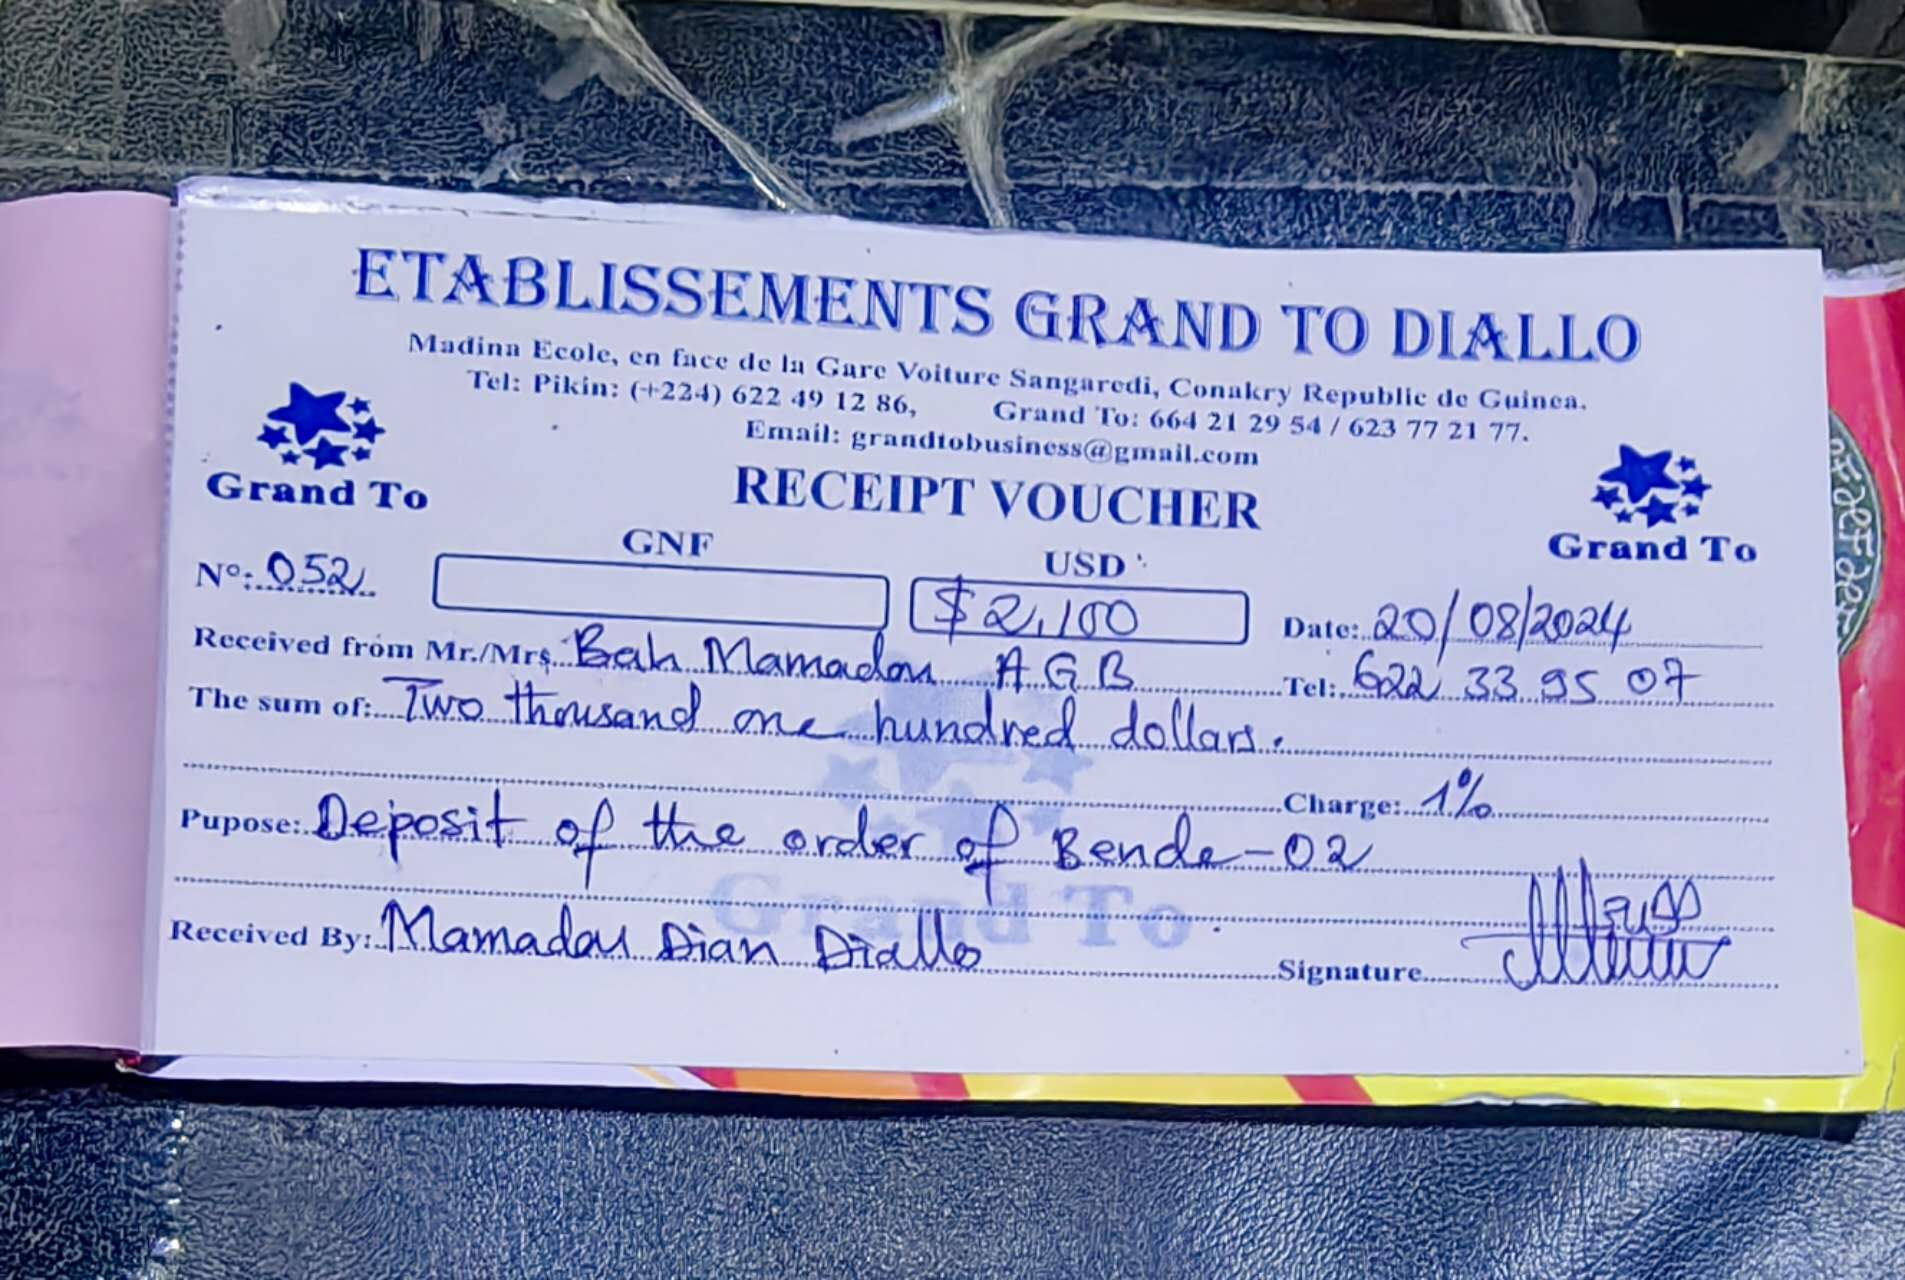 ETABLISSEMENTS GRAND TO DIALLO
Madina Ecole, en face de la Gare Voiture Sangaredi, Conakry Republic de Guinea.
Tel: Pikin: (+224) 622 49 12 86, Grand To: 664 21 29 54 / 623 77 21 77.
Email: grandtobusiness@gmail.com
Grand To
RECEIPT VOUCHER
Grand To
GNF
USD
N°: 052
$2,100
Date: 20/08/2024
Received from Mr./Mrs. Bah Mamadou A G B Tel: 622 33 95 07
The sum of: Two thousand one hundred dollars.
Charge: 1%
Pupose: Deposit of the order of Bende-02
Grand To
Received By: Mamadou Dian Diallo
Signature